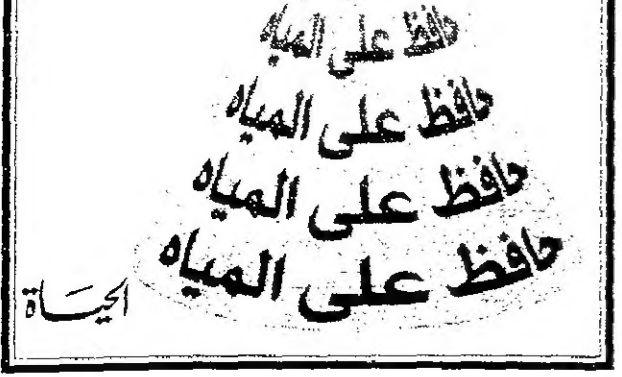 حافظ على المياه
حافظ على المياه
حافظ على المياه
حافظ على المياه
الحياة